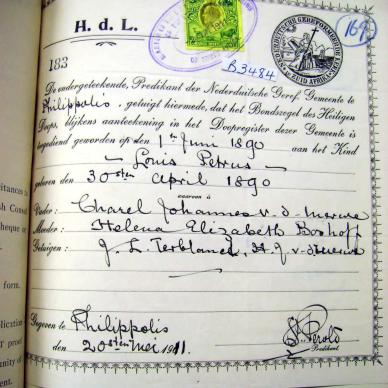 H. d. L.
169
183
B3484
NEDERDUITSCHE GEREFORMEERDE
ZUID AFRIKA
De ondergeteekende, Predikant der Nederduitsche Geref. Gemeente te
Philippolis, getuigt hiermede, dat het Bondszegel des Heiligen
Doops, blijkens aanteekening in het Doopregister dezer Gemeente is
toegediend geworden op den 1sten Juni 1890 aan het Kind
- Louis Petrus -
geboren den 30sten April 1890
waarvan is
Vader: Charel Johannes v. d. Merwe
Moeder: Helena Elizabeth Boshoff
Getuigen: J. L. Terblanche, H. J. v. d. Merwe
Gegeven te Philippolis
den 20sten Mei 1911.
Perold
Predikant
itances to
sh Consul
heque or
form.
plication
r proof
unity of
ent.